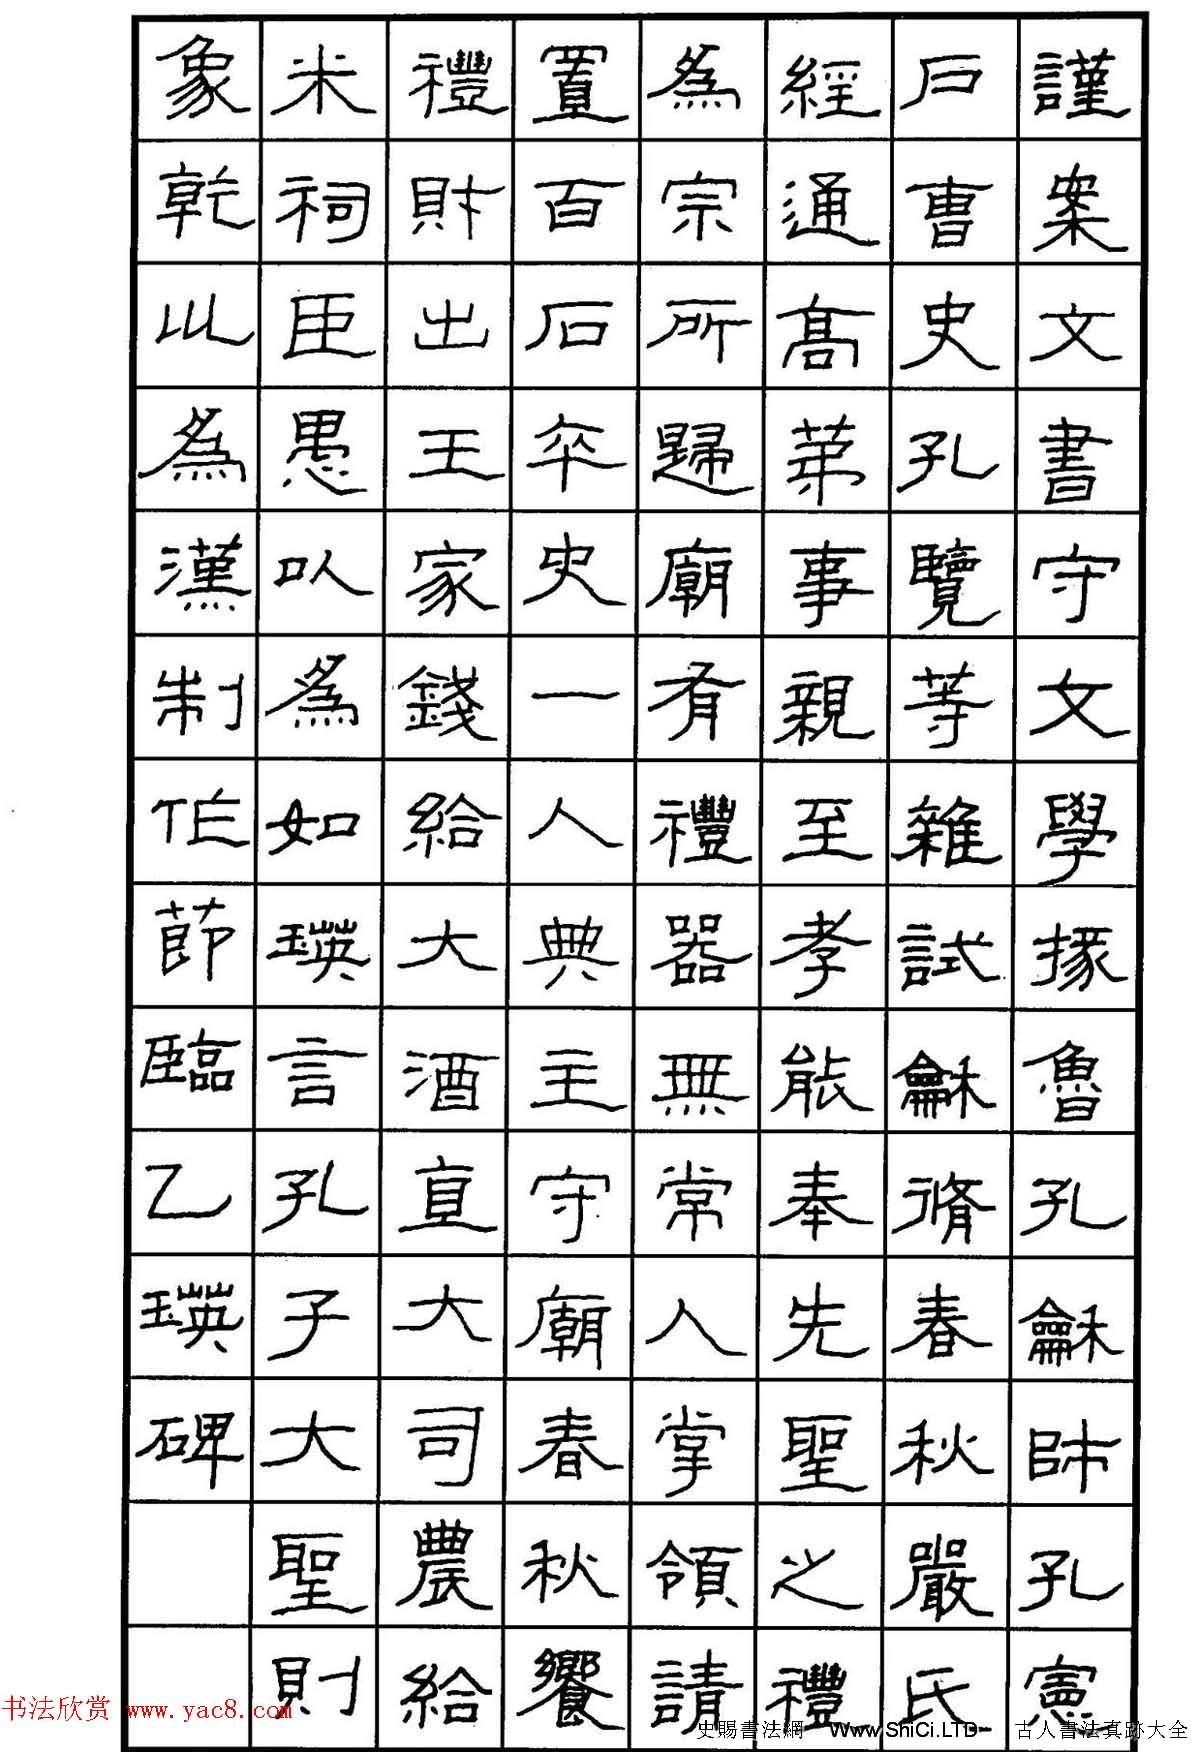 謹案文書守文學掾魯孔龢師孔憲
戶曹史孔覽等雜試龢脩春秋嚴氏
經通高苐事親至孝能奉先聖之禮
為宗所歸廟有禮器無常人掌領請
置百石卒史一人典主守廟春秋饗
禮財出王家錢給大酒直大司農給
米祠臣愚以為如瑛言孔子大聖則
象乾以為漢制作節臨乙瑛碑
书法欣赏 www.yac8.com
史賜書法網 Www.ShiCi.LTD 古人書法真跡大全